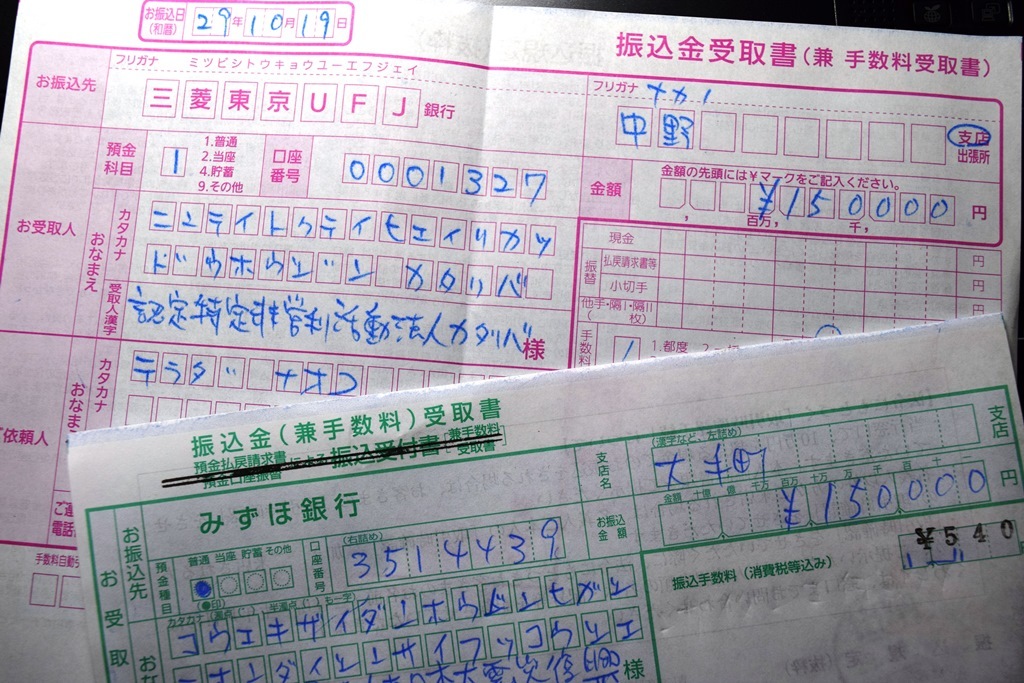 お振込日(和暦) 29年10月19日
振込金受取書(兼 手数料受取書)
お振込先
フリガナ ミツビシトウキョウユーエフジェイ
三菱東京UFJ銀行
フリガナ ナカノ
中野 支店
出張所
預金科目 1
1.普通
2.当座
4.貯蓄
9.その他
口座番号 0001327
金額
金額の先頭には¥マークをご記入ください。
¥150000円
百万, 千,
お受取人
カタカナ
おなまえ
ニンテイトクテイヒエイリカツ
ドウホウジン カタリバ
受取人漢字
認定特定非営利活動法人カタリバ様
振替
現金 円
払戻請求書等 円
小切手 円
他手・隔Ⅰ・隔Ⅱ
( 枚) 円
手数料
1.都度
ご依頼人
カタカナ
おなま
テラダ ナオコ
手数料自動
振込金(兼手数料)受取書
預金払戻請求書
預金口座振替
による
振込受付書
兼手数料
受取書
お振込先
みずほ銀行
支店名
(漢字など、左詰め)
大手町
支店
預金種目
普通 当座 貯蓄 その他
(●印)
口座番号
(右詰め)
3514439
お振込金額
金額 十億 億 千万 百万 十万 万 千 百 十 一
¥150000円
振込手数料(消費税等込み)
¥540
お受取
カタカナ(濁点(゛)、半濁点(゜)も一字)
コウエキザイダンホウジンヒガシ
ニホンダイシンサイフッコウシエ
様